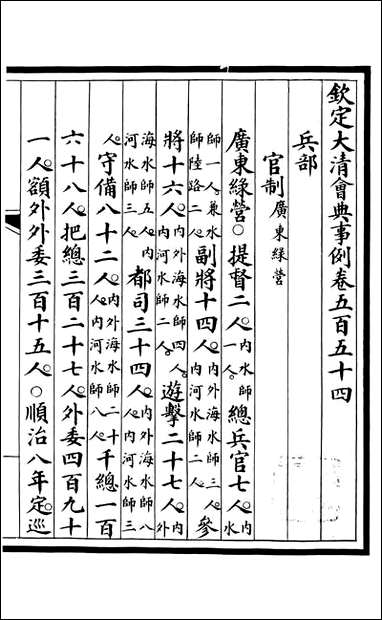 欽定大清會典事例卷五百五十四
兵部
官制廣東綠營
廣東綠營○提督二人內水師一人總兵官七人內水
師一人兼水師陸路二人副將十四人內外海水師三人內河水師二人參
將十六人內外海水師四人內河水師二人遊擊二十七人內外
海水師五人內河水師三人都司三十四人內外海水師八人內河水師三
人守備八十二人內外海水師二十人內河水師八人千總一百
六十八人把總三百二十七人外委四百九十
一人額外外委三百十五人○順治八年定巡